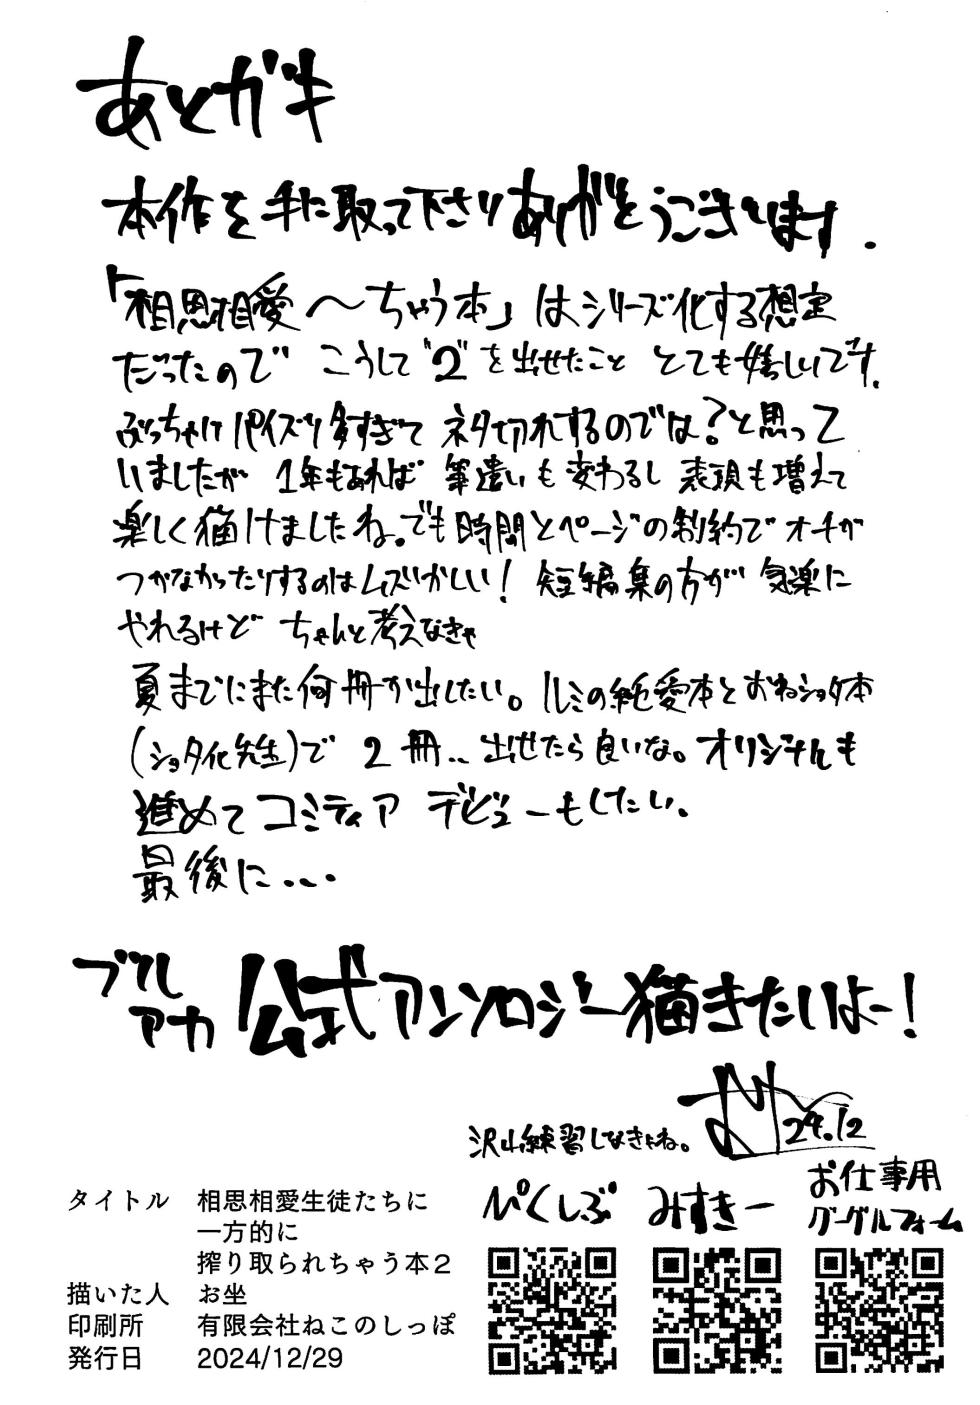 あとガキ
本作を手に取って下さりありがとうございます.
「相思相愛〜ちゃう本」はシリーズ化する想定
だったので こうして"2"を出せたこと とても嬉しいです.
ぶっちゃけパイズリ多すぎて ネタ切れするのでは?と思って
いましたが 1年もあれば 筆遣いも変わるし 表現も増えて
楽しく描けましたね。でも時間とページの制約でオチが
つかなかったりするのはムズいかしい! 短編集の方が 気楽に
やれるけど ちゃんと考えなきゃ
夏までにまた何冊か出したい。ルミの純愛本とおねショタ本
(ショタ化先生)で 2冊.. 出せたら良いな。オリジナルも
進めてコミティア デビューもしたい。
最後に...
ブルアカ 公式アンソロジー描きたいよー!
24.12
沢山練習しなきゃね。
ぴくしぶ みすきー お仕事用
グーグルフォーム
タイトル 相思相愛生徒たちに
一方的に
搾り取られちゃう本2
描いた人 お坐
印刷所 有限会社ねこのしっぽ
発行日 2024/12/29